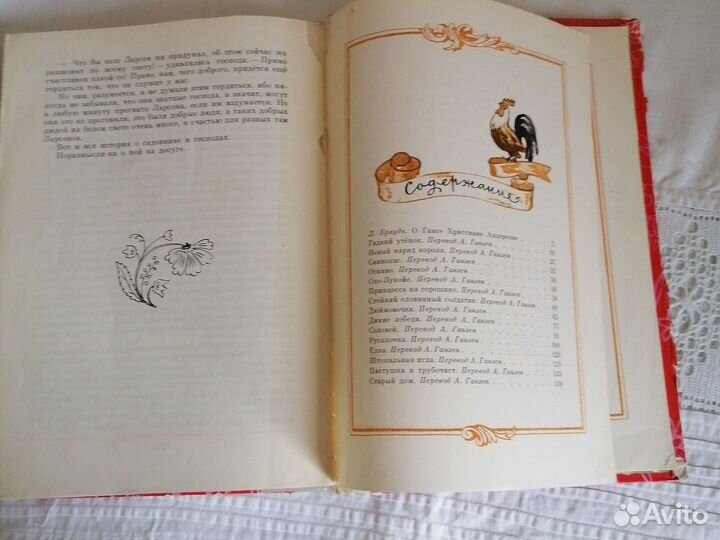 — Что бы наш Ларсен ни придумал, об этом сейчас же
раззвонят по всему свету! — удивлялись господа. — Прямо
счастливец какой-то! Право, нам, чего доброго, придётся ещё
гордиться тем, что он служит у нас.
Но они, разумеется, и не думали этим гордиться, ибо ни-
когда не забывали, что они знатные господа, а значит, могут
в любую минуту прогнать Ларсена, если им вздумается. Но
они его не прогоняли, это были добрые люди, а таких добрых
людей на белом свете очень много, к счастью для разных там
Ларсенов.
Вот и вся история о садовнике и господах.
Поразмысли-ка о ней на досуге.
Содержание
Л. Брауде. О Гансе Христиане Андерсене
Гадкий утёнок. Перевод А. Ганзен 5
Новый наряд короля. Перевод А. Ганзен
Свинопас. Перевод А. Ганзен 27
Огниво. Перевод А. Ганзен
Оле-Лукойе. Перевод А. Ганзен
Принцесса на горошине. Перевод А. Ганзен
Стойкий оловянный солдатик. Перевод А. Ганзен
Дюймовочка. Перевод А. Ганзен
Дикие лебеди. Перевод А. Ганзен
Соловей. Перевод А. Ганзен
Русалочка. Перевод А. Ганзен
Ёлка. Перевод А. Ганзен
Штопальная игла. Перевод А. Ганзен
Пастушка и трубочист. Перевод А. Ганзен
Старый дом. Перевод А. Ганзен
Avito